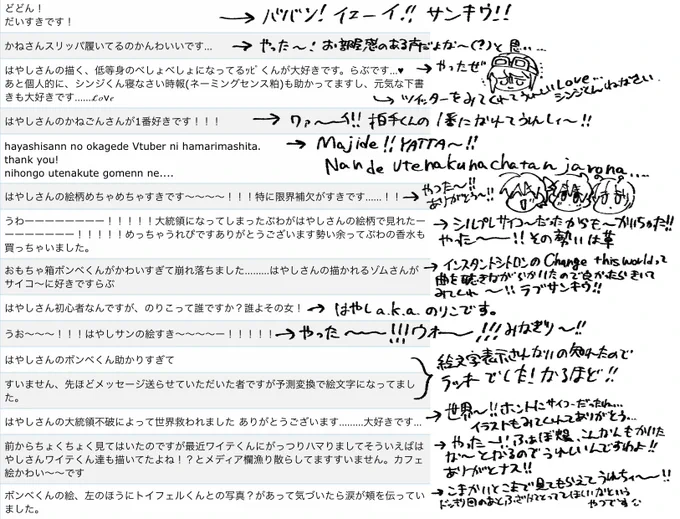 どどん！
だいすきです！
→ バババン！ イエーイ!! サンキウ!!
かねさんスリッパ履いてるのかんわいいです...
→ やった〜！
はやしさんの描く、低等身のべしょべしょになってるｯﾋﾟくんが大好きです。らぶです...♥
あと個人的に、シンジくん寝なさい時報(ネーミングセンス粕)も助かってますし、元気な下書きも大好きです......𝓛𝓸𝓿𝓮
→ やったぜ
Love...
シンジくんねなさい
はやしさんのかねごんさんが1番好きです！！！
→ ワァ〜〜イ!! 相手くんの1番になれてうれしィ〜!!
hayashisann no okagede Vtuber ni hamarimashita.
thank you!
nihongo utenakute gomenn ne....
→ Majide!! YATTA〜!!
Nande utenakunachatan jarona....
はやしさんの絵柄めちゃめちゃすきです〜〜〜〜！！！特に限界補欠がすきです......！！
→ やった〜!!
ありがとう〜!!
うわーーーーーーーー！！！！！大統領になってしまったぶわがはやしさんの絵柄で見れたーーーーーーーー！！！！！めっちゃうれぴですありがとうございます勢い余ってぶわの香水も買っちゃいました。
やった〜〜!! その勢いは草
おもちゃ箱ボンベくんがかわいすぎて崩れ落ちました.........はやしさんの描かれるゾムさんがサイコ〜に好きですらぶ
→ インスタントシトロンのChange this worldって
曲を聴きながらかいたので良かったらきいて
みてくれ〜!! ラブサンキウ!!
はやしさん初心者なんですが、のりこって誰ですか？誰よその女！
→ はやし a.k.a. のりこです。
うお〜〜〜！！！はやしサンの絵すき〜〜〜〜ー！！！！！
→ やった〜〜!!! ウオ〜〜!!! みなぎり〜!!
はやしさんのボンベくん助かりすぎて
すいません、先ほどメッセージ送らせていただいた者ですが予測変換で絵文字になってました。
絵文字表示されないの知れたので
ラッキーでした! なるほど!!
はやしさんの大統領不破によって世界救われました ありがとうございます.........大好きです...
→ 世界〜!! ホントにサイコーだったね...
イラストもみてくれてありがとう...
前からちょくちょく見てはいたのですが最近ワイテくんにがっつりハマりましてそういえばはやしさんワイテくん達も描いてたよね！？とメディア欄漁り散らしてますすいません。カフェ絵かわい〜〜です
→ やった〜!!
ありがとナス!!
ボンベくんの絵、左のほうにトイフェルくんとの写真？があって気づいたら涙が頬を伝っていました。
→ こまかいとこまで見てもらえてうれち〜〜!!